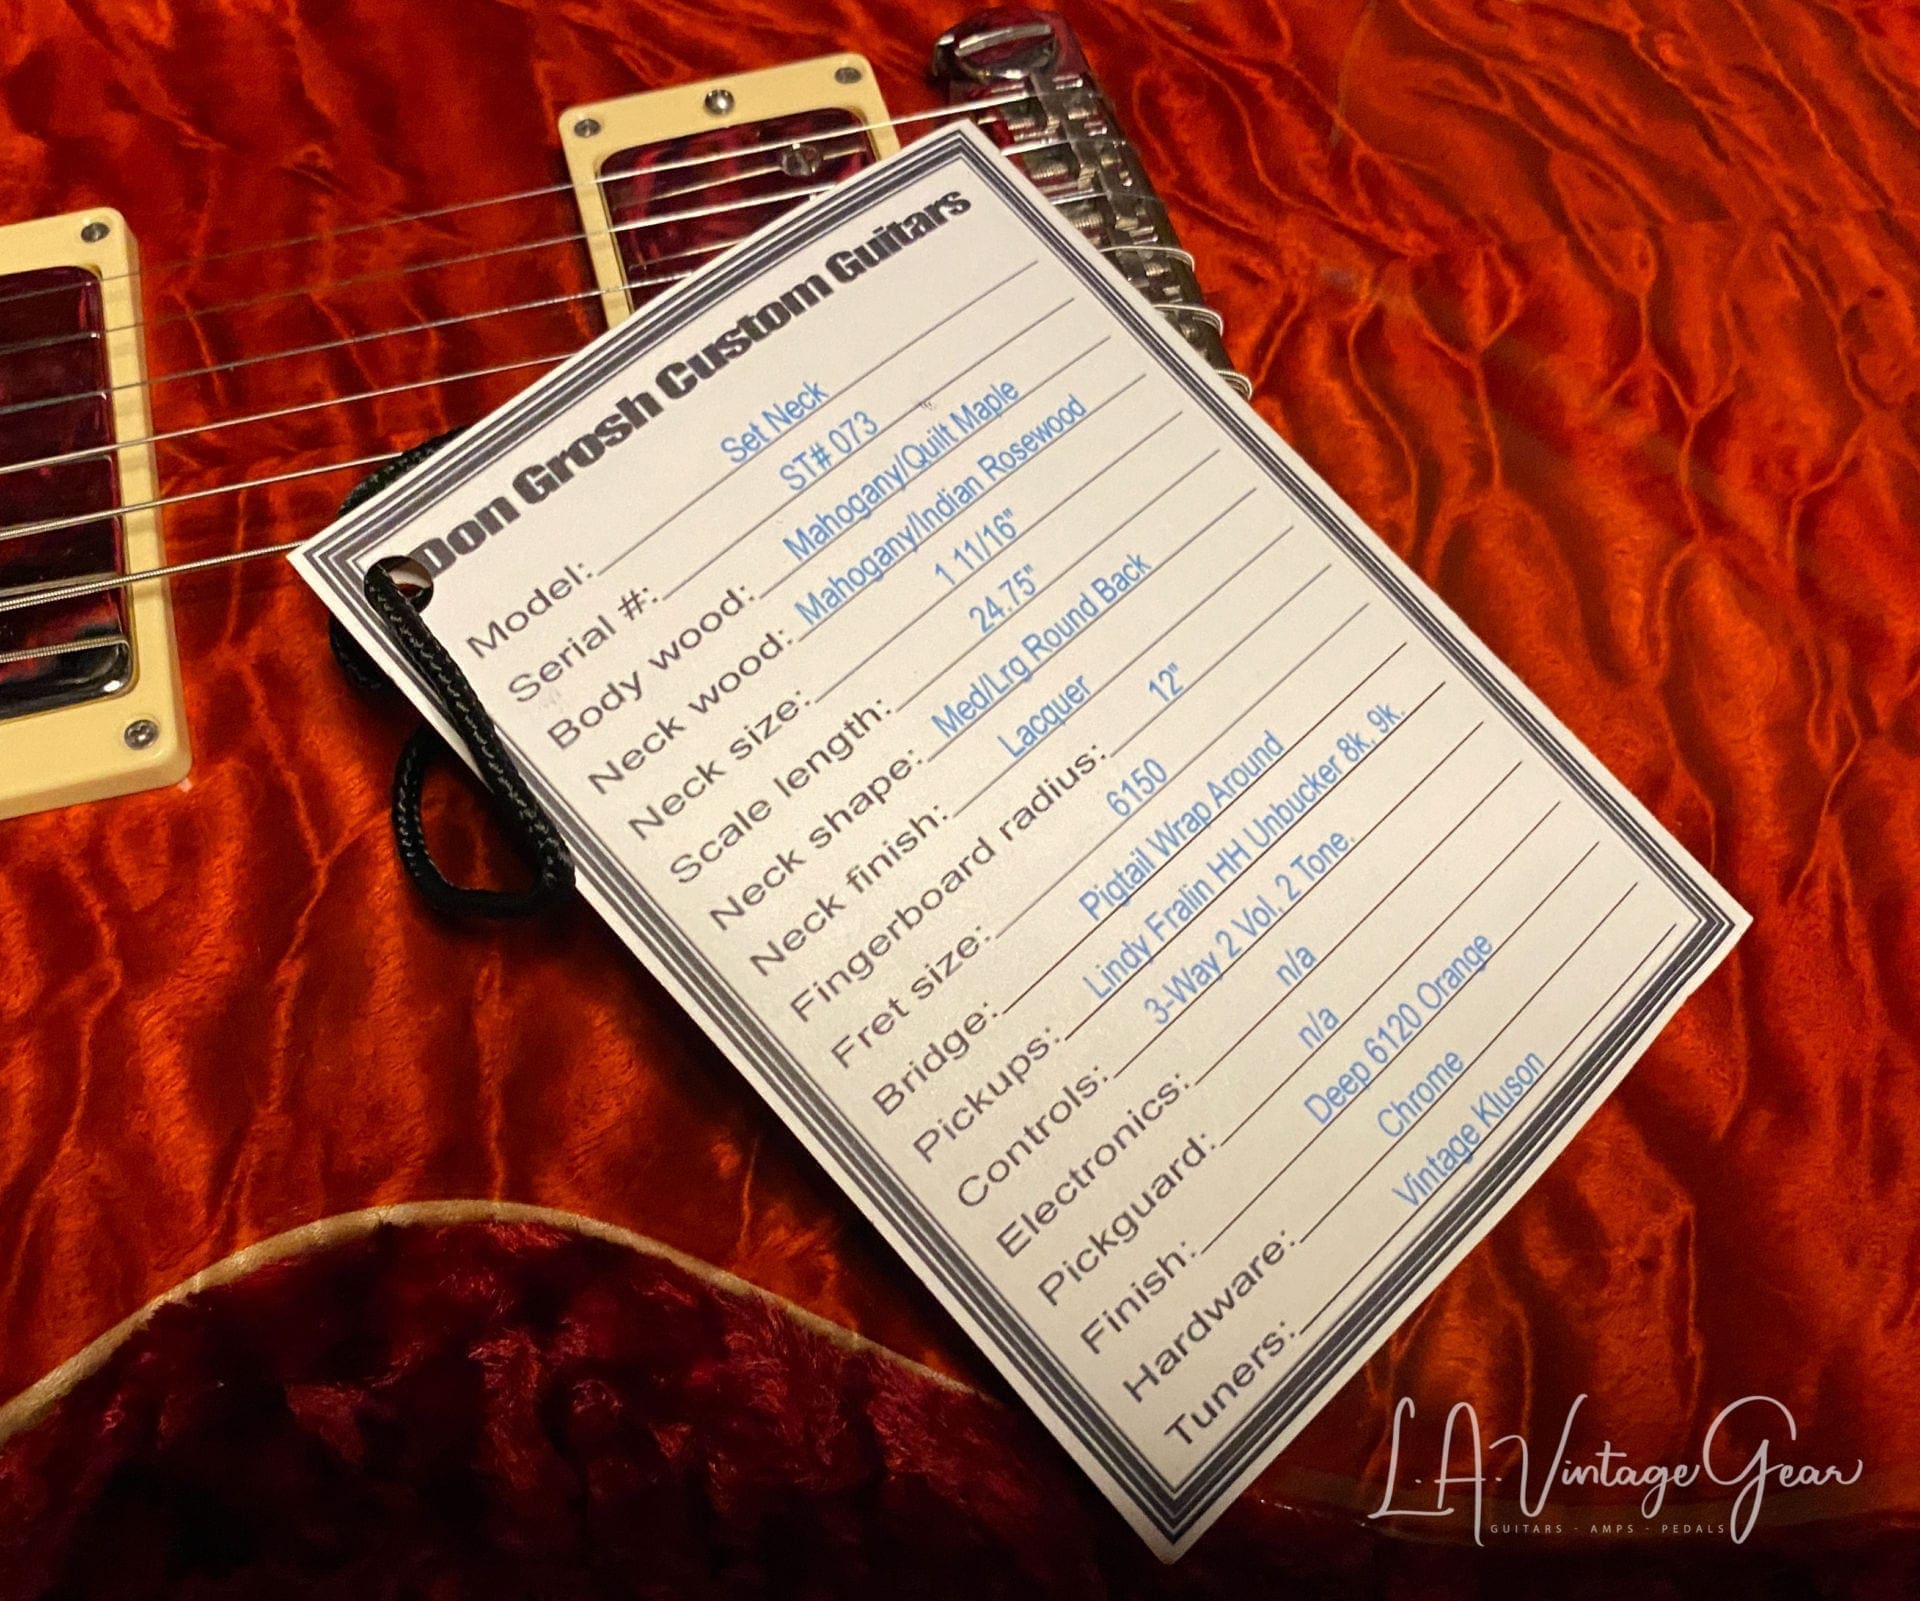 Don Grosh Custom Guitars
Model: Set Neck
Serial #: ST# 073
Body wood: Mahogany/Quilt Maple
Neck wood: Mahogany/Indian Rosewood
Neck size: 1 11/16"
Scale length: 24.75"
Neck shape: Med/Lrg Round Back
Neck finish: Lacquer
Fingerboard radius: 12"
Fret size: 6150
Bridge: Pigtail Wrap Around
Pickups: Lindy Fralin HH Unbucker 8k, 9k.
Controls: 3-Way 2 Vol, 2 Tone.
Electronics: n/a
Pickguard: n/a
Finish: Deep 6120 Orange
Hardware: Chrome
Tuners: Vintage Kluson
L.A. Vintage Gear
GUITARS - AMPS - PEDALS